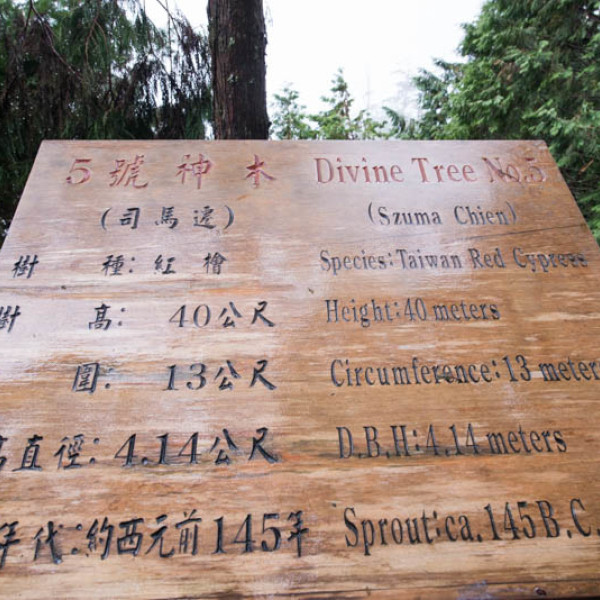 5號神木 Divine Tree No.5
(司馬遷) (Szuma Chien)
樹種:紅檜 Species:Taiwan Red Cypress
樹高:40公尺 Height:40 meters
圍:13公尺 Circumference:13 meters
高直徑:4.14公尺 D.B.H:4.14 meters
年代:約西元前145年 Sprout:ca.145B.C.